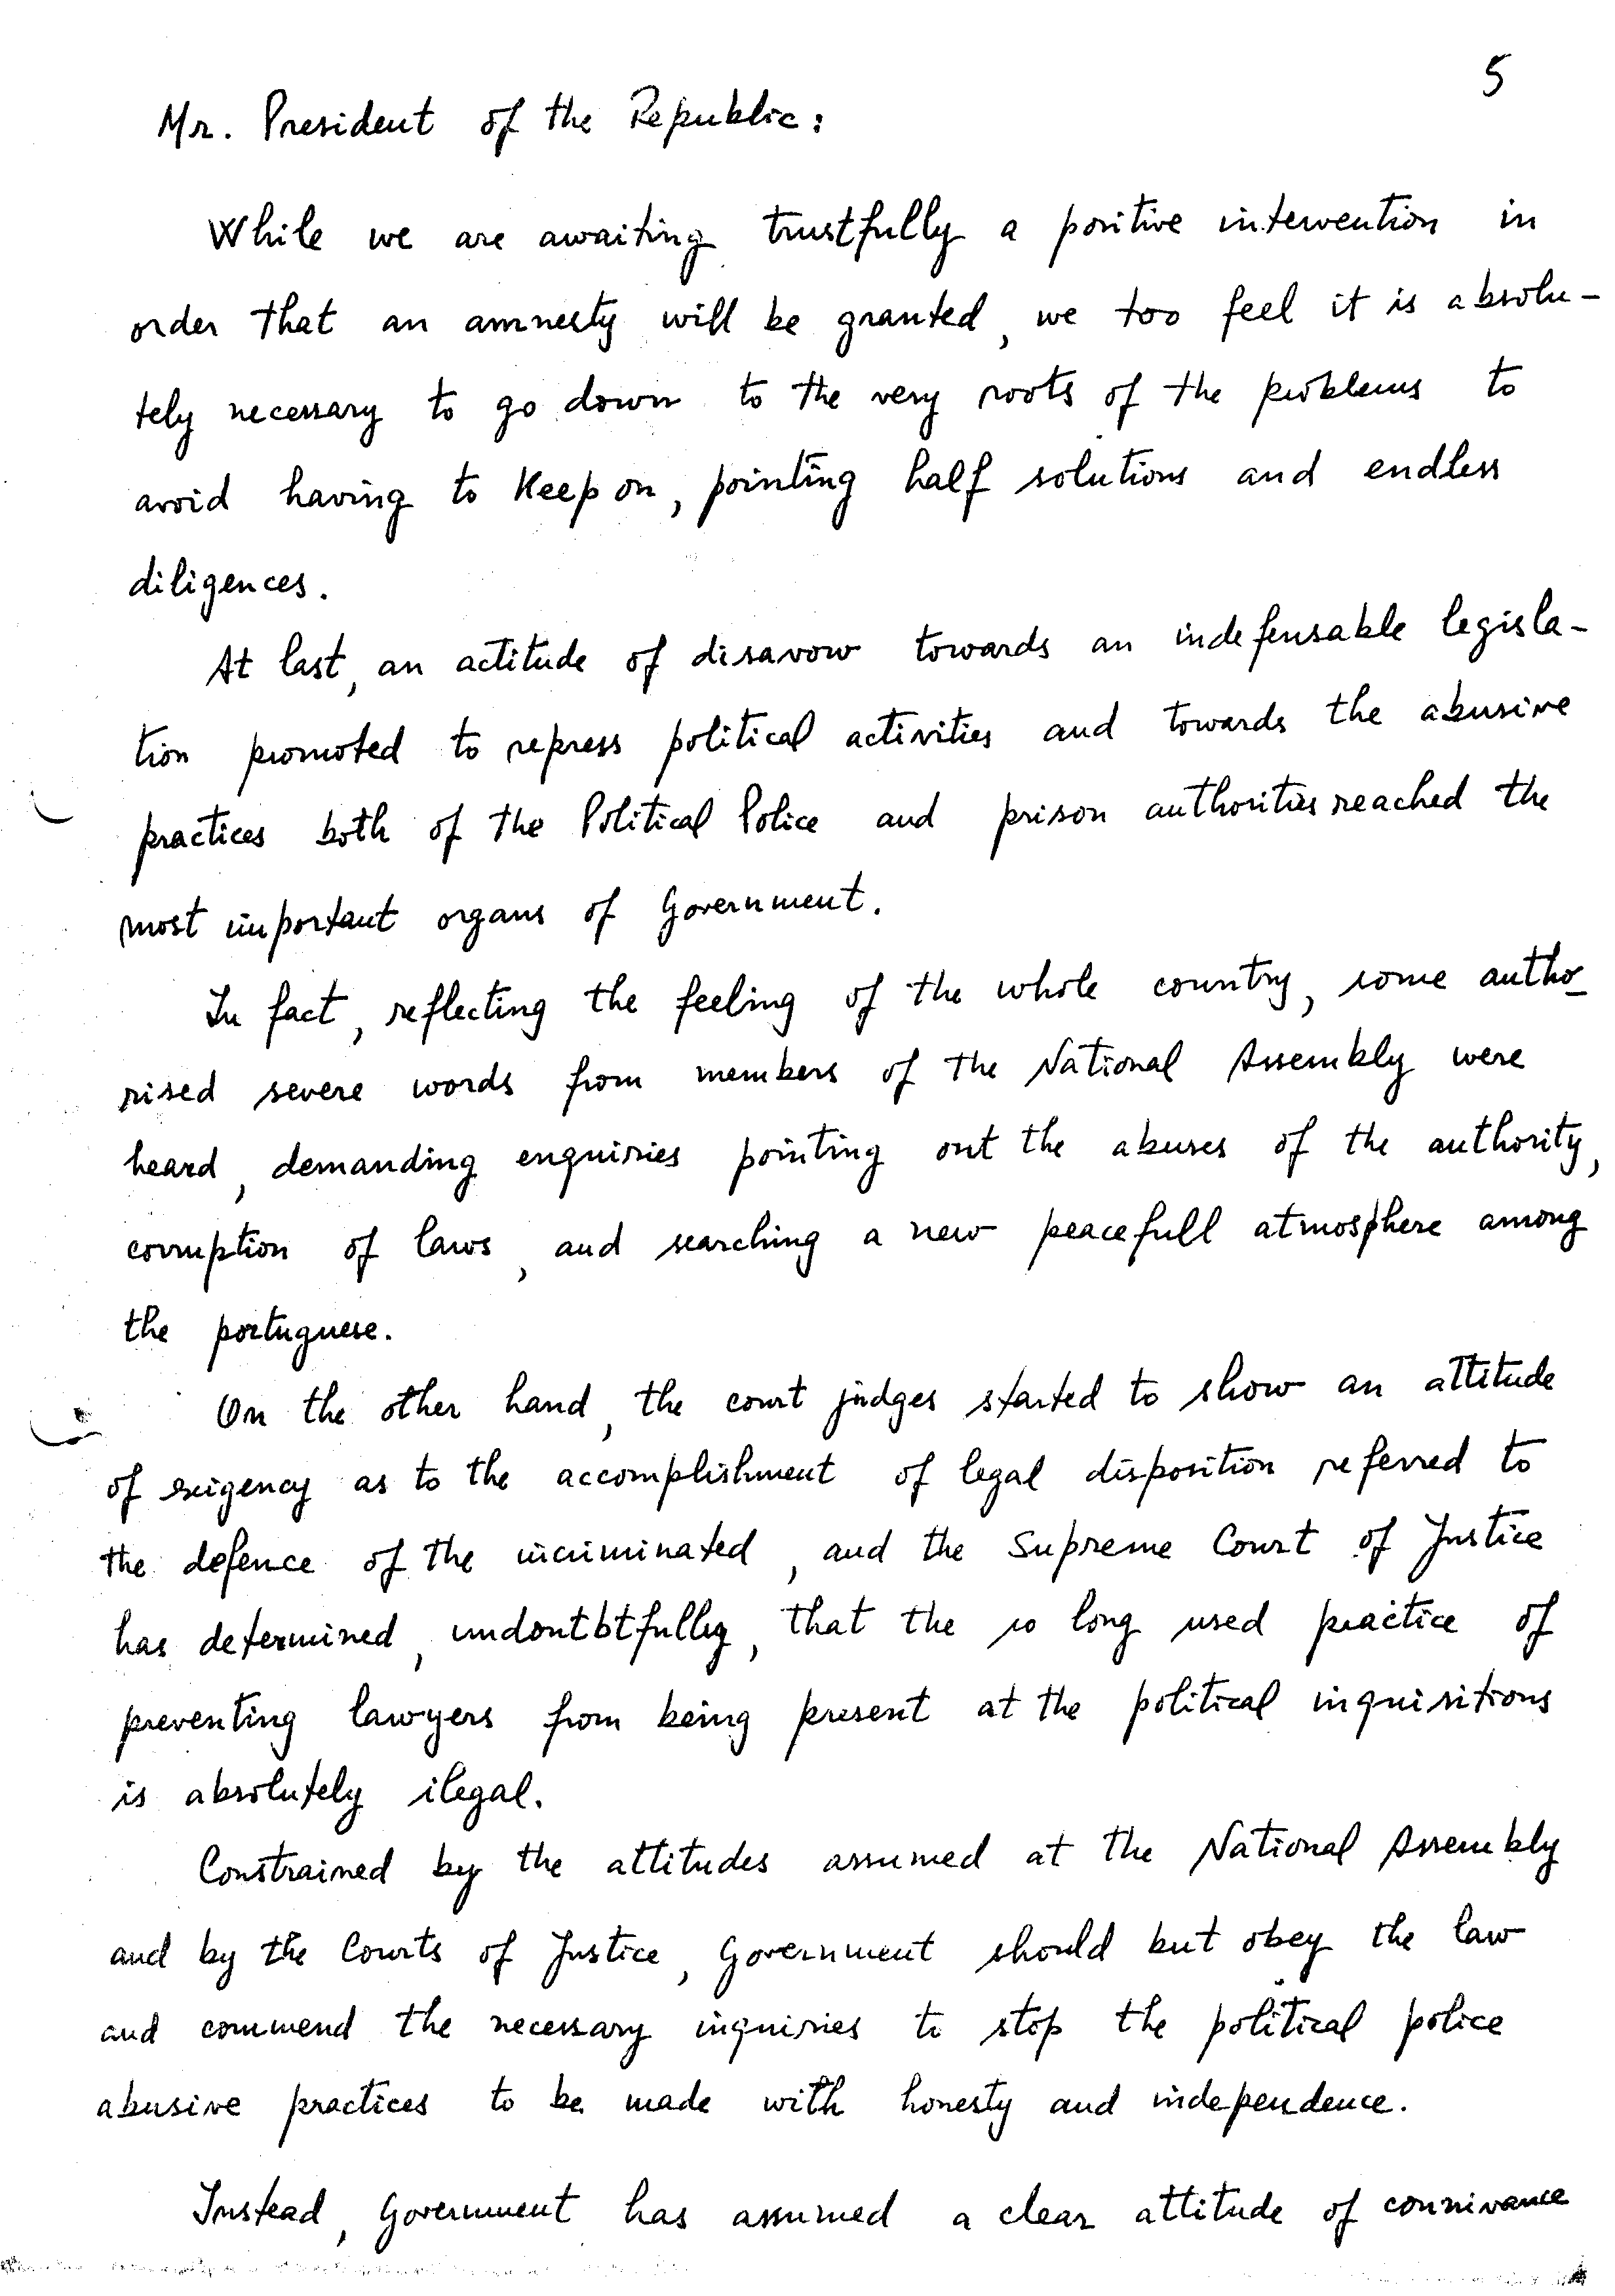 5
Mr. President of the Republic:
While we are awaiting trustfully a positive intervention in
order that an amnesty will be granted, we too feel it is absolu-
tely necessary to go down to the very roots of the problems to
avoid having to keep on, pointing half solutions and endless
diligences.
At last, an actitude of disavow towards an indefensable legisla-
tion promoted to repress political activities and towards the abusive
practices both of the Political Police and prison authorities reached the
most important organs of Government.
In fact, reflecting the feeling of the whole country, some autho-
rised severe words from members of the National Assembly were
heard, demanding enquiries pointing out the abuses of the authority,
corruption of laws, and searching a new peacefull atmosphere among
the portuguese.
On the other hand, the court judges started to show an attitude
of exigency as to the accomplishment of legal disposition referred to
the defence of the incriminated, and the Supreme Court of Justice
has determined, undoutbtfully, that the so long used practice of
preventing lawyers from being present at the political inquisitions
is absolutely ilegal.
Constrained by the attitudes assumed at the National Assembly
and by the Courts of Justice, Government should but obey the law
and commend the necessary inquiries to stop the political police
abusive practices to be made with honesty and independence.
Instead, Government has assumed a clear attitude of connivance